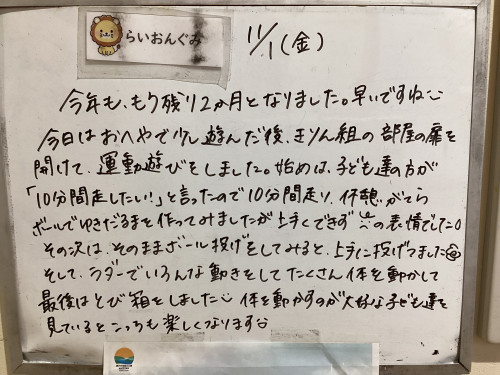 らいおんぐみ
11/1(金)
今年も、もう残り2か月となりました。早いですね
今日はおへやで少し遊んだ後、きりん組の部屋の扉を
開けて、運動遊びをしました。始めは、子ども達の方が
「10分間走したい!」と言ったので10分間走り、休憩がてら
ボールでゆきだるまを作ってみましたが上手くできず の表情でした。
その次は、そのままボール投げをしてみると、上手に投げてました
そして、ラダーでいろんな動きをしてたくさん体を動かして
最後はとび箱をしました 体を動かすのが大好きな子ども達を
見ているとこっちも楽しくなります